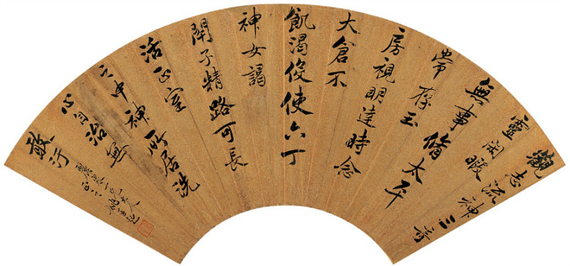 觀志流神三奇
靈閒暇
無事脩太平
常存玉
房視明達時念
大倉不
飢渴役使六丁
神女謁
閉子精路可長
活正室
之中神所居洗
心自治無
敢行